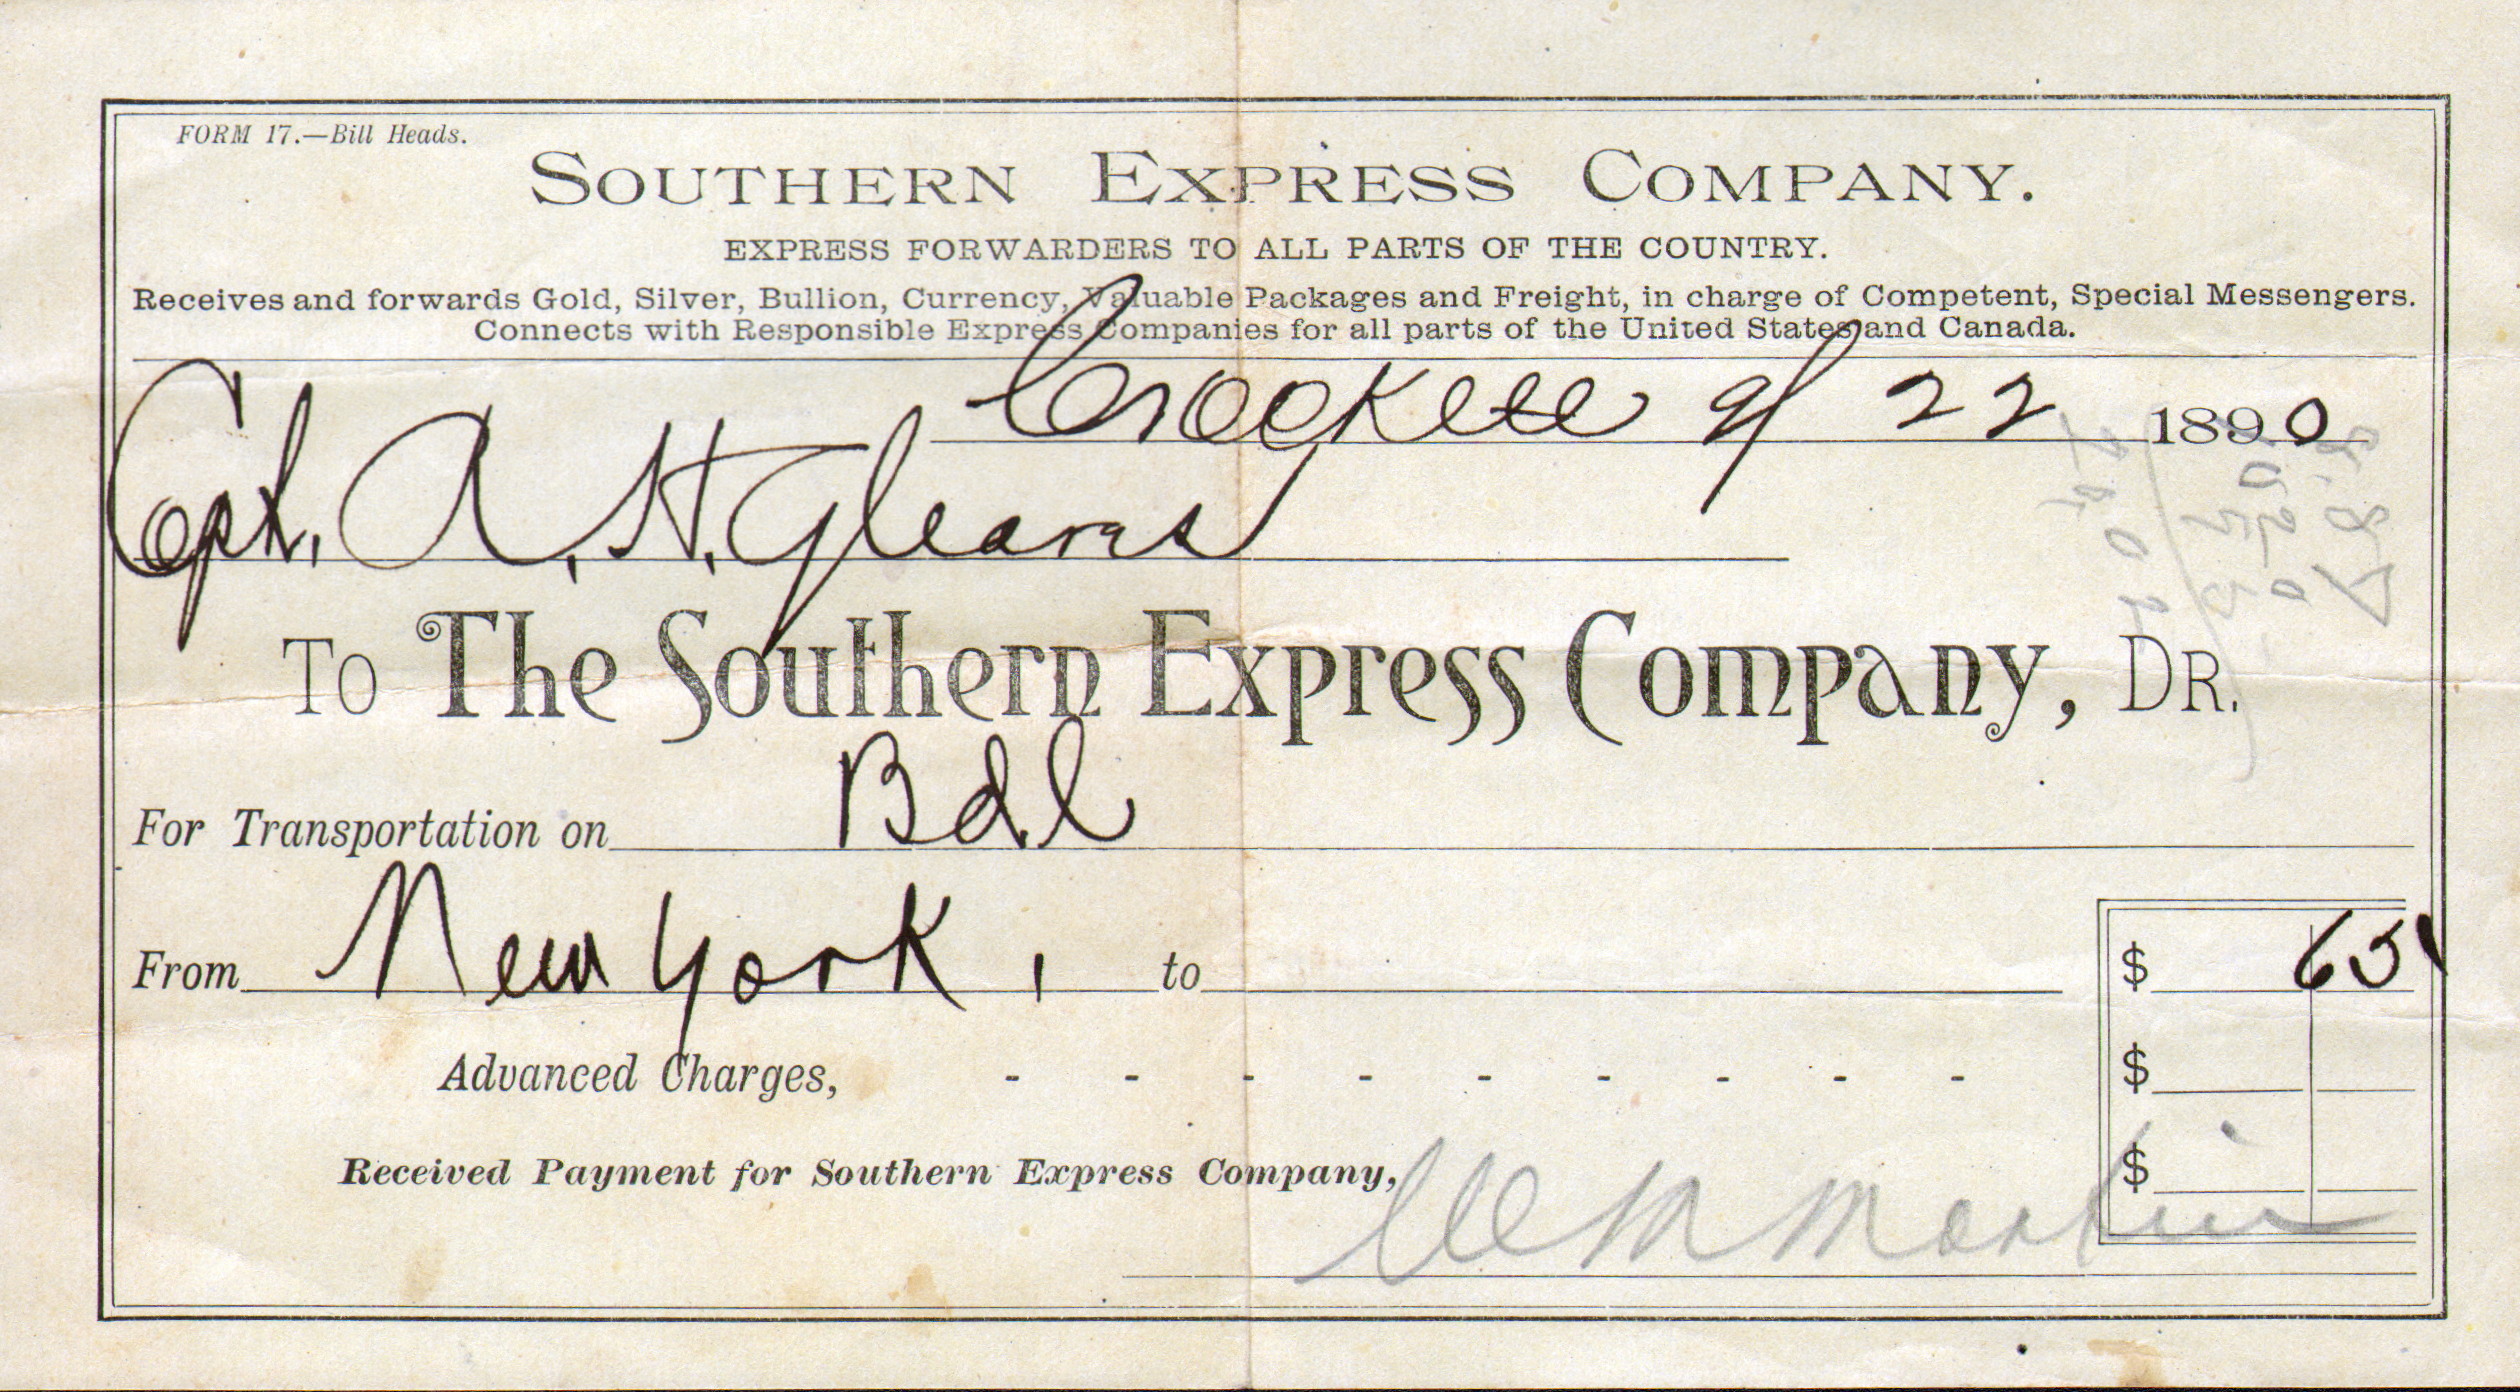 FORM 17.—Bill Heads.
SOUTHERN EXPRESS COMPANY.
EXPRESS FORWARDERS TO ALL PARTS OF THE COUNTRY.
Receives and forwards Gold, Silver, Bullion, Currency, Valuable Packages and Freight, in charge of Competent, Special Messengers.
Connects with Responsible Express Companies for all parts of the United States and Canada.
Crockett 9/22 1890
Capt. A. H. Gleaves
TO The Southern Express Company, DR.
For Transportation on Bdl
From New York, to $ 65
Advanced Charges, - - - - - - - - - $
$
Received Payment for Southern Express Company,
Martin